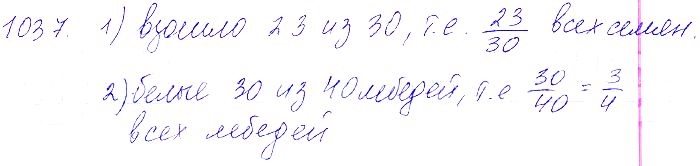 1037. 1) взошло 23 из 30, т.е. 23/30 всех семян.
2) белые 30 из 40 лебедей, т.е 30/40 = 3/4
всех лебедей